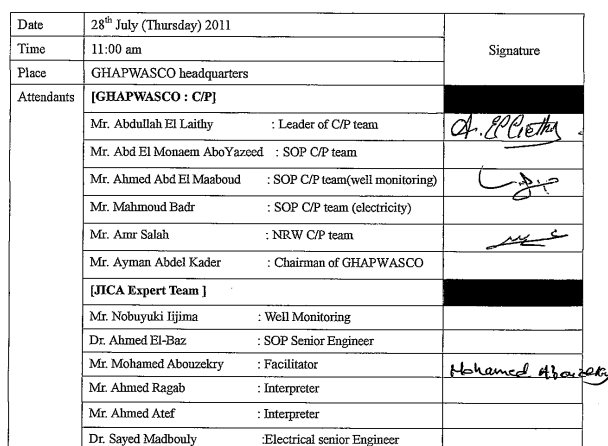 Date 28th July (Thursday) 2011 Signature
Time 11:00 am
Place GHAPWASCO headquarters
Attendants [GHAPWASCO : C/P]
Mr. Abdullah El Laithy : Leader of C/P team A. El Liethy
Mr. Abd El Monaem AboYazeed : SOP C/P team
Mr. Ahmed Abd El Maaboud : SOP C/P team(well monitoring)
Mr. Mahmoud Badr : SOP C/P team (electricity)
Mr. Amr Salah : NRW C/P team
Mr. Ayman Abdel Kader : Chairman of GHAPWASCO
[JICA Expert Team ]
Mr. Nobuyuki Iijima : Well Monitoring
Dr. Ahmed El-Baz : SOP Senior Engineer
Mr. Mohamed Abouzekry : Facilitator Mohamed Abouzekry
Mr. Ahmed Ragab : Interpreter
Mr. Ahmed Atef : Interpreter
Dr. Sayed Madbouly :Electrical senior Engineer